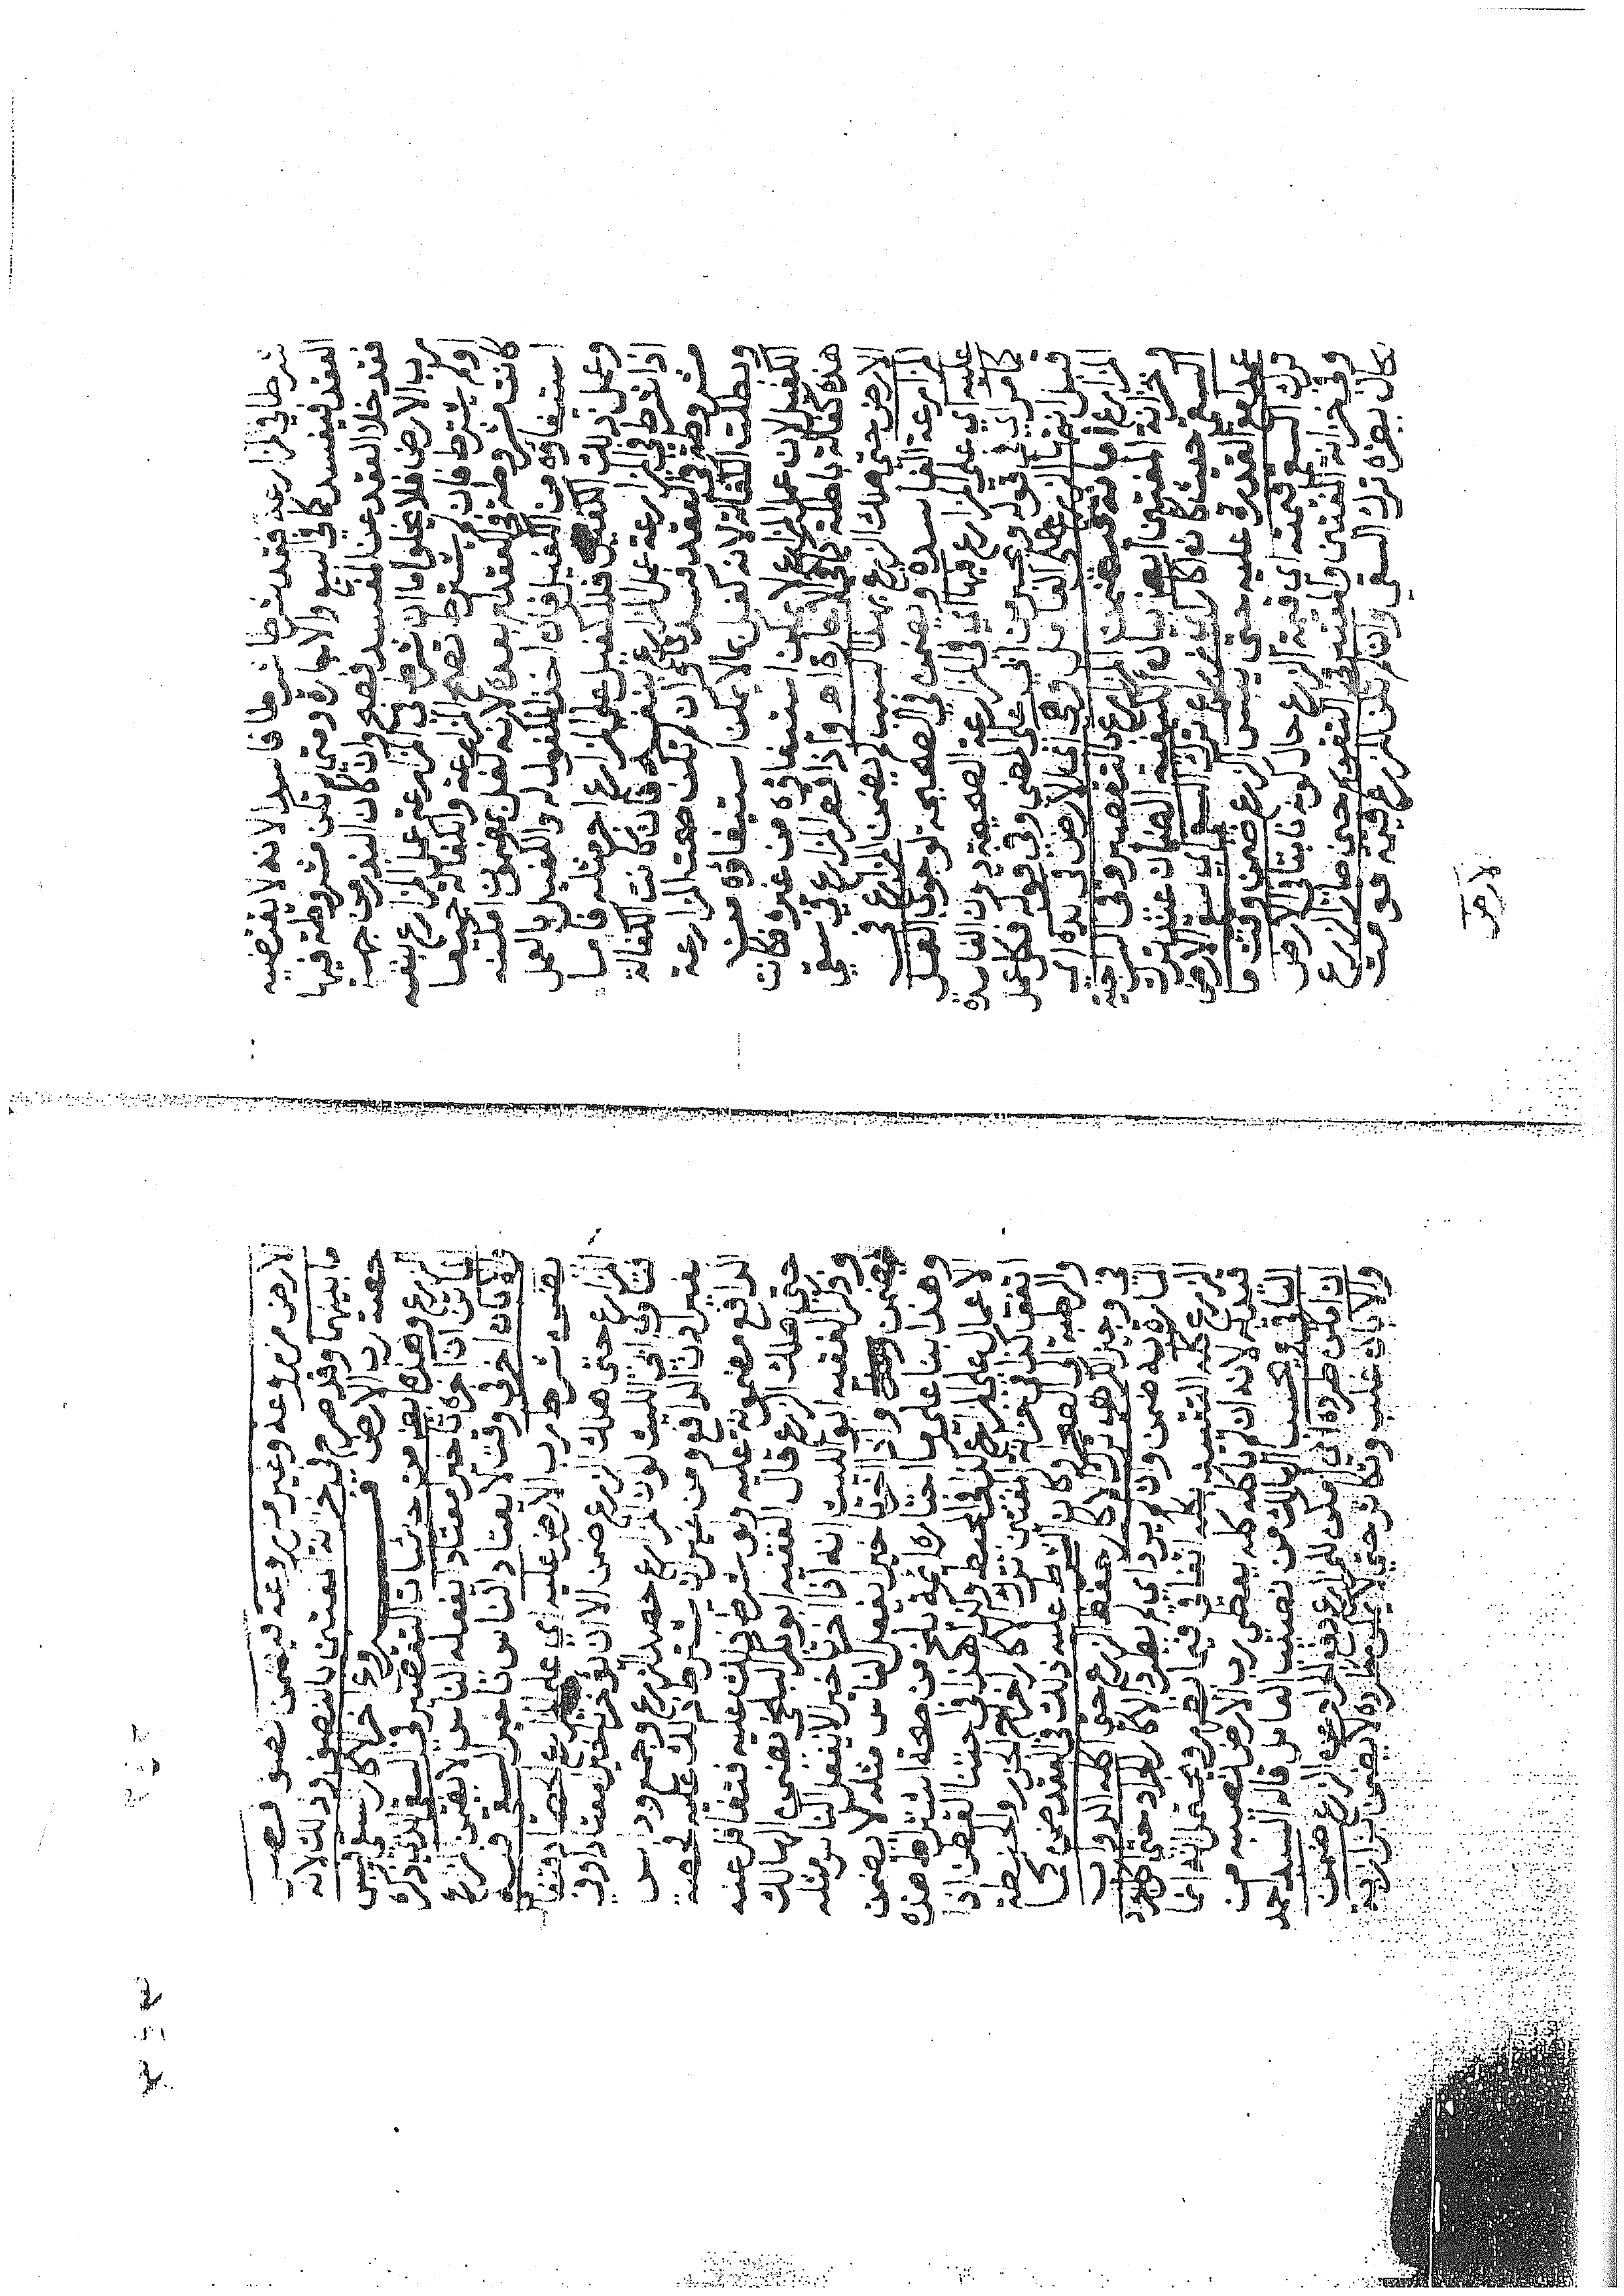 شرطا في المزارعة فقد شرطا شرطا فاسدا لانه لا يقتضيه
العقد فيفسد كما في البيع والاجارة ومتى لم تكن مشروطة فيها
فقد خلا العقد عن المفسد فصح وان كان البذر من جهة
رب الارض فلا يخلوا اما ان شرط في المزارعة عمل المزارع بنفسه
او لم يشترط فان لم يشترط تصح المزارعة والكفالة جميعا
كانت مشروطة في العقد او بعده لانه كفل بمضمون امكنه
استيفاؤه من الكفيل فان اخذ المكفول له والكفيل بالعمل
وعمل ذلك الكفيل فللكفيل على المزارع اجر مثله فاما
اذا شرط في المزارعة عمل المزارع بنفسه فان كانت الكفالة
مشروطة في العقد فسدتا وان لم تكن صحت المزارعة
وبطلت الكفالة لانه كفل بما لا يمكن استيفاؤه من
الكفيل لان عمل المزارع لا يمكن استيفاؤه من غيره فكانت
هذه كفالة باطلة كما في الاجارة اه واذا قصر المزارع في سقي
الارض حتى هلك الزرع بهذا السبب لم يضمن المزارع في
المزارعة الفاسدة ويضمن في الصحيحة لوجوب العمل
عليه اي على المزارع فيها اي في المزارعة الصحيحة دون الفاسدة
كما مر اي في قوله ويجبر من ابى على المضي وفي قوله وكل عمل
قبل انتهاء الزرع على العامل وهي اي الارض في يده اي
المزارع امانة فيضمن المزارع بالتقصير وفي السراجية
خزانة المفتين ايضا الضمان عند ترك
السقي حيث قال اكار اي مزارع ترك السقي اي سقي الارض
عمدا مع القدرة عليه حتى يبس الزرع ضمن وقت ما
ترك السقي قيمته اي قيمة الزرع حال كونه نابتا في الارض
وفي خزانة المفتين والمعتبر في التقويم حين صار الزرع
بحال يضره ترك السقي وان لم يكن للزرع قيمة قومت
الارض
الارض مزروعة وغير مزروعة فيضمن نصف فضل
ما بينهما وقد صرح في خزانة المفتين بالنصف وذلك لانه
حصة رب الارض فروع اخر الاكار سقي يبس
الزرع وهذه ايضا من جزئيات التقصير في السقي الذي ذكره
الماتن اذا اخره تاخيرا معتادا يفعله الناس لا يضمن الزرع
والا بان اخر في وقت لا يعتاد الناس تاخير السقي فيه
يضمن شرط رب الارض عليه اي على المزارع الحصاد فتغافل
المزارع حتى هلك الزرع ضمن الا ان يؤخر تاخيرا معتادا وفي
فتاوى ابي الليث لو ان المزارع حصد الزرع وجمع وداس
بغير اذن الدافع ومن غير ان يشترط ذلك عليه فحصة
الدافع مضمونة عليه ولو شرط ذلك عليه فتغافل عنه
حتى هلك الزرع قال الفقيه ابو بكر البلخي يضمن الهالك
وذكر الفقيه ابو الليث انه اذا اخر تاخيرا لا يفعل الناس مثله
يضمن واذا اخر تاخيرا يفعل الناس مثله لا يضمن
وهذا بناء على ما اختاره ائمة بلخ من صحة اشتراط هذه
الاعمال على المزارع كذا في المحيط القطن اذا
تفتق كذا في خزانة المفتين ترك الاكار اخراج الجزر والحنطة
الرطبة الى الصحراء وكان شرط عليه ذلك في العقد ضمن كما
في وجيز الكردري ترك الاكار حفظ الزرع حتى اكله الدواب
ضمن وان لم يرد اي لم يطرد الاكار الجراد حتى اكل
الزرع كله
لانه ان لم ياكله كله يعطى رب الارض نصيبه من
قاله السيد احمد
ان امكن طرده اي ان امكن للمزارع دفع الجراد عن الزرع ضمن
والا بان غلب وتكاثر حتى لا يمكن طرده لا يضمن بزازية